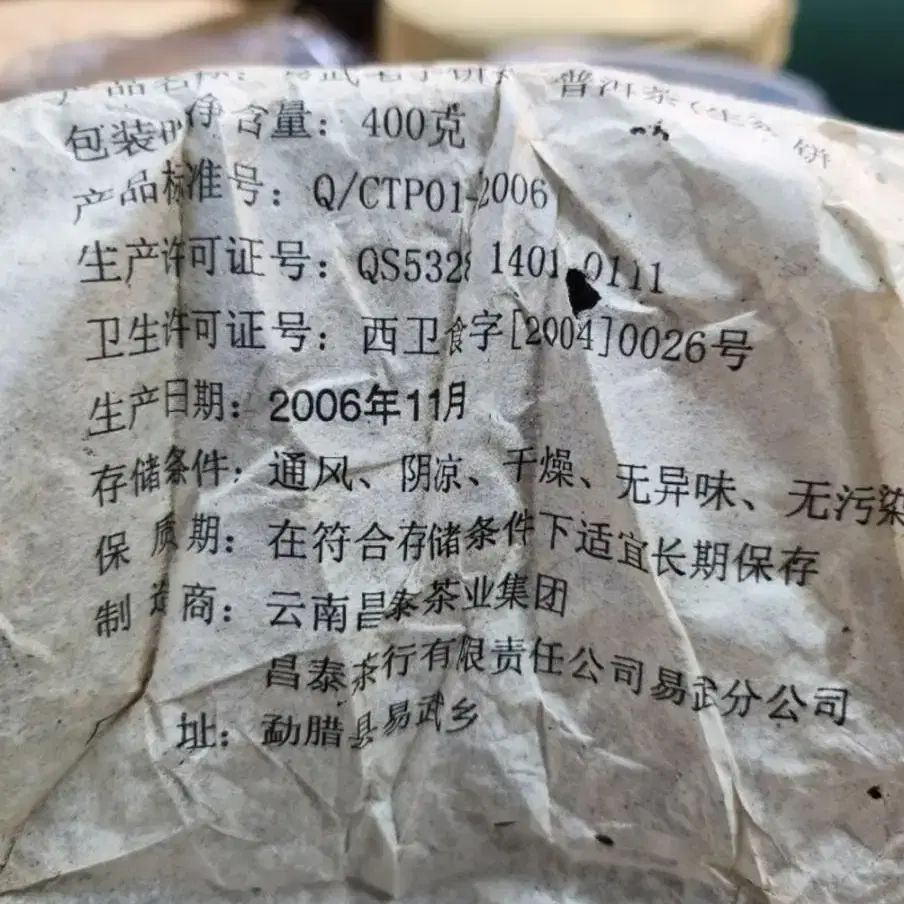 产品名称：易武 饼 普洱茶(生茶 饼
包装 净含量：400克
产品标准号：Q/CTP01-2006
生产许可证号：QS5328 1401 0111
卫生许可证号：西卫食字[2004]0026号
生产日期：2006年11月
存储条件：通风、阴凉、干燥、无异味、无污染
保质期：在符合存储条件下适宜长期保存
制造商：云南昌泰茶业集团
昌泰茶行有限责任公司易武分公司
址：勐腊县易武乡